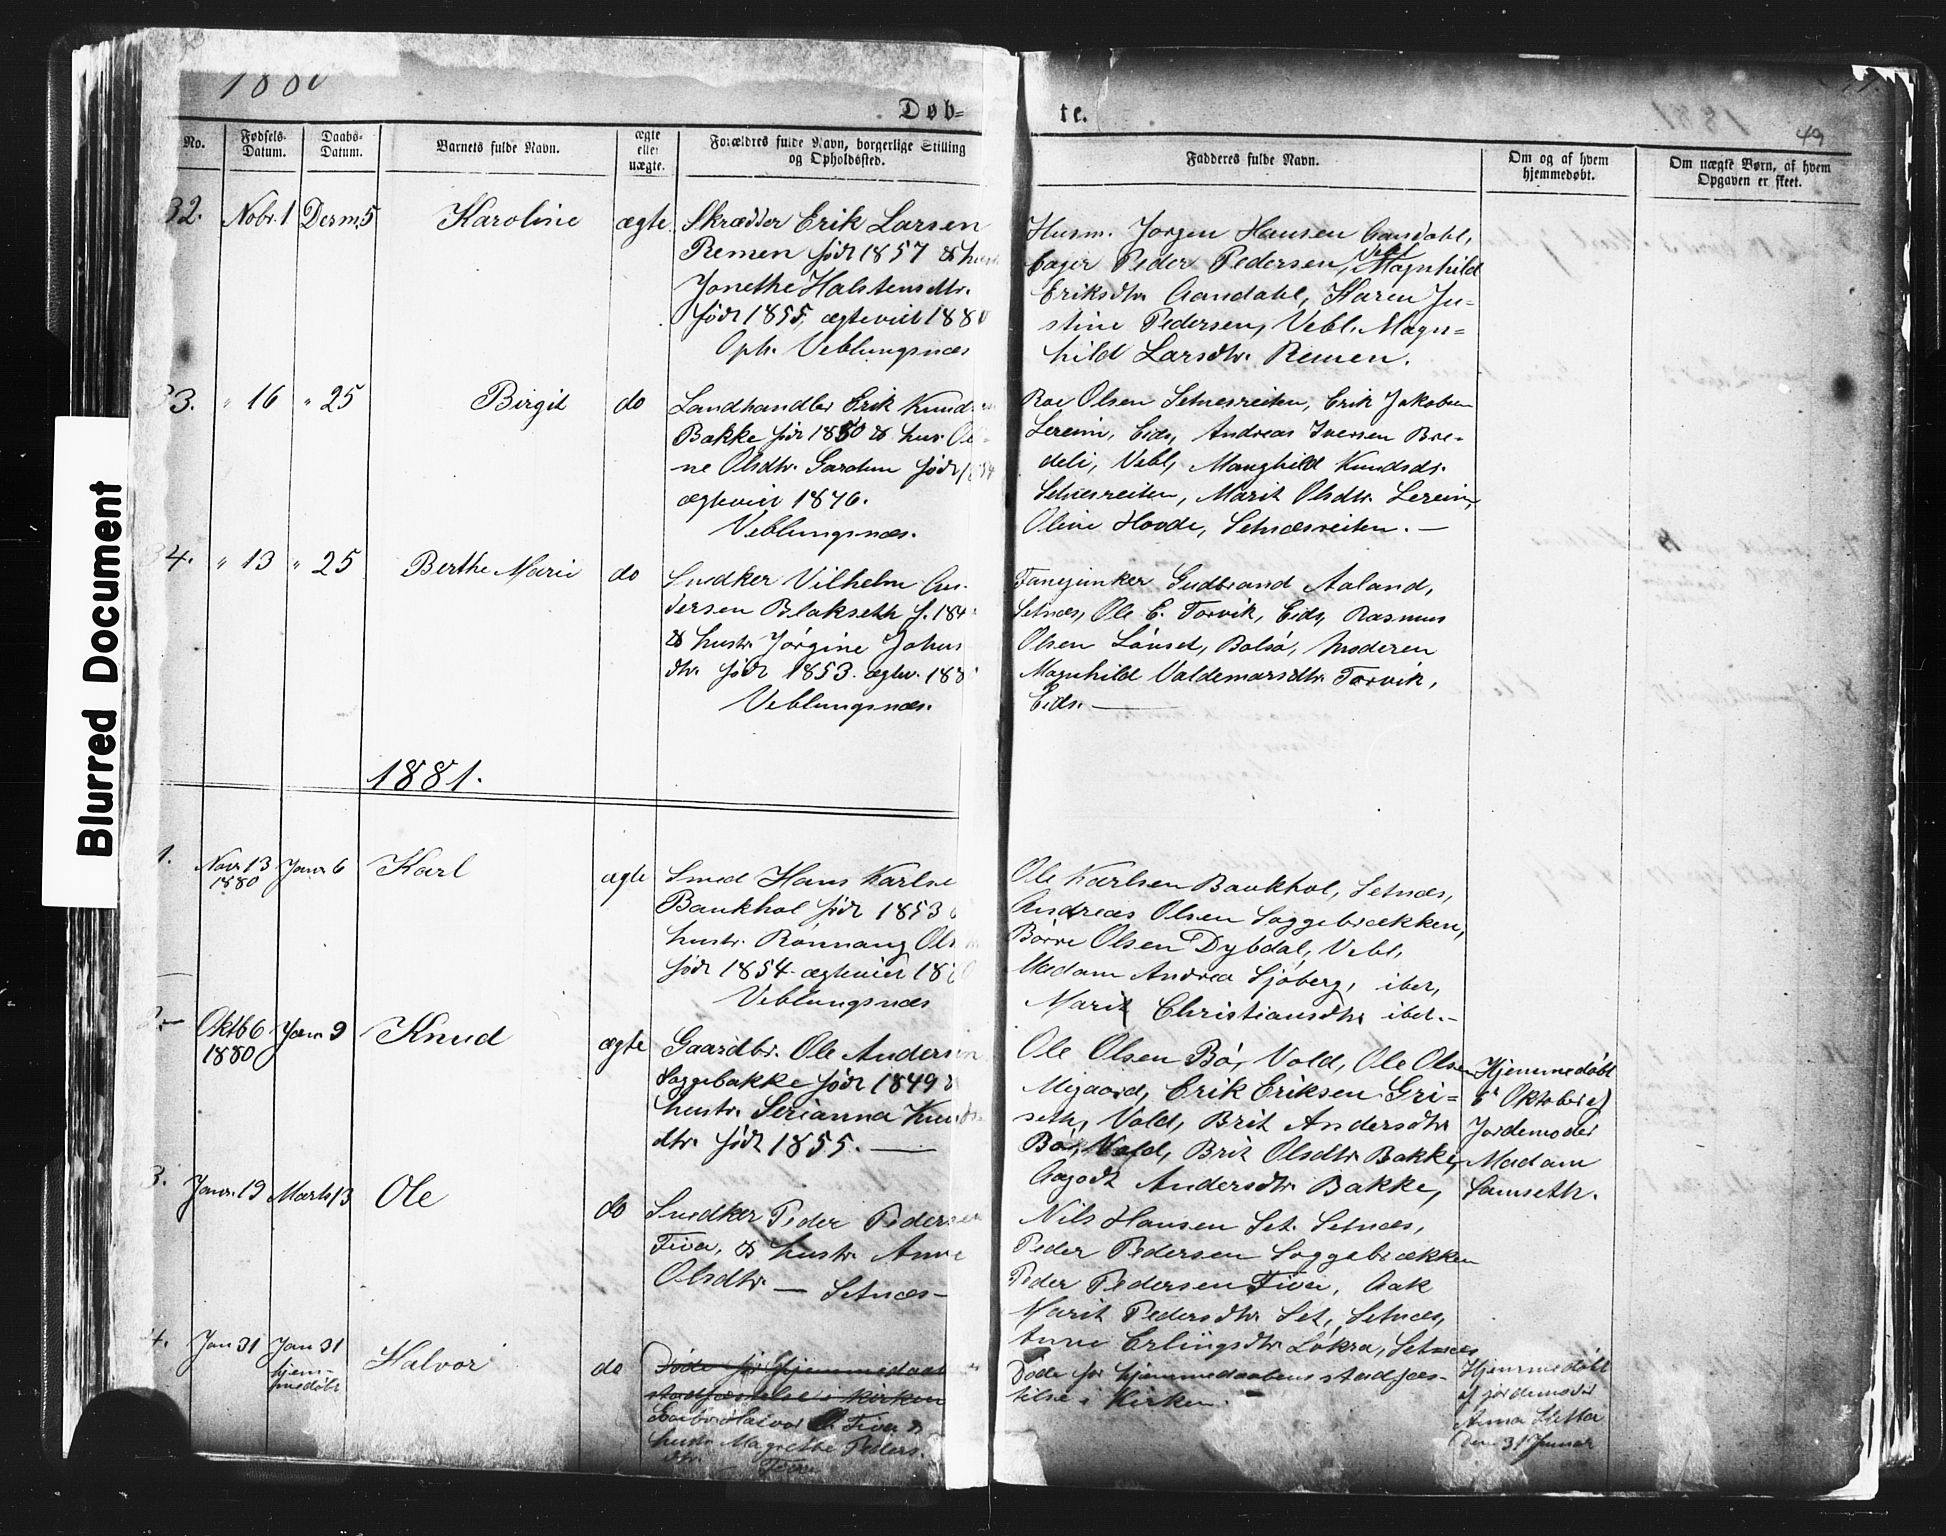 1880
Døb-
te.
1881
49
No.
Fødsels-
Datum.
Daabs-
Datum.
Barnets fulde Navn.
ægte
eller
uægte.
Forældres fulde Navn, borgerlige Stilling
og Opholdssted.
Fadderes fulde Navn.
Om og af hvem
hjemmedøbt.
Om uægte Børn, af hvem
Opgaven er skeet.
32. Nobr. 1 Desm. 5 Karoline ægte
Skrædder Erik Larsen
Remen født 1857 &
Jonethe Halstensdtr.
født 1855, ægteviet 1880
Oph. Veblungsnæs
Husm. Jørgen Hansen Aandahl,
Bager Peder Pedersen, Vebl. Magnhild
Eriksdtr. Aandahl, Karen Ju-
stine Pedersen, Vebl. Magn-
hild Larsdtr. Remen.
33. " 16 " 25 Birgit do
Landhandler Erik Knuds
Bakke før 1850 & hus. Ol-
ne Olsdtr. født
ægteviet 1876.
Veblungsnæs.
Roe Olsen Setnesreiten, Erik Jakobsen
Lereim, Eids, Andreas Iversen Bre-
deli, Vebl, Manghild Knudsdr.
Setnesreiten, Marit Olsdtr. Lereim,
Oline Hovde, Setnæsreiten. —
34. " 13 " 25 Berthe Marie do
Snedker Vilhelm An-
dersen Blakseth f. 184
& hustr. Jørgine Johns
dtr. født 1853. ægtev. 188
Veblungsnæs.
Fanejunker Gudbrand Aaland,
Setnæs, Ole E. Torvik, Eids, Rasmus
Olsen Lønset, Bolsø, Moderen
Magnhild Valdemarsdtr. Torvik,
Eids. —
1881.
1. Novr. 13 Janr. 6 Karl ægte
1880
Smed Hans Karlse
Baukhol født 1853
hustr. Rønnaug Ols
født 1854. ægteviet 18
Veblungsnæs
Ole Karlsen Baukhol, Setnæs,
Andreas Olsen Soggebrækken,
Børre Olsen Dybdal, Vebl,
Madam Andrea Sjøberg, ibet,
Marit Christiansdtr ibet. -
2. — Oktb 6 Janr 9 Knud ægte
1880
Gaardbr. Ole Andersen
Soggebakke født 1849 &
hustr. Serianna Knuds
dtr. født 1855. —
Ole Olsen Bø, Vold, Ole Olsen
Mjgaard, Erik Eriksen Gri-
seth, Vold, Brit Andersdtr
Bø, Vold, Brit Olsdtr Bakke,
Aagodt Andersdtr Bakke,
Hjemmedøbt
6' Oktober af
Jordemoder
Madam
Samseth.
3. Janr. 19 Marts 13 Ole do
Snedker Peder Pedersen
Fiva, & hustr. Anne
Olsdtr — Setnæs —
Nils Hansen Set. Setnæs,
Peder Pedersen Soggebrækken
Peder Pedersen Fiva, Aak
Marit Pedersdtr Set, Setnæs,
Anne Erlingsdtr. Løkra, Setnæs
4. Jan 31 Jan 31 Halvor do
hjem-
medøbt
Døde før Hjemmedaab
stadfæstelse i Kirken
Halvor O. Fiva &
hustr. Magrethe Peders.
dtr. Fiva
Døde før hjemmedaabens stadfæs-
telse i Kirken.
Hjemmedøbt
af jordemoder
Anna
den 31 Januar
Blurred Document